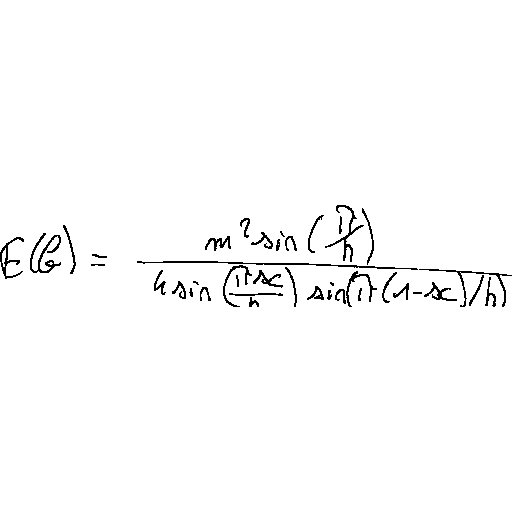 E(G) = \frac{m^2 \sin(\frac{\pi}{h})}{4 \sin(\frac{\pi x}{h}) \sin(\pi(1-x)/h)}